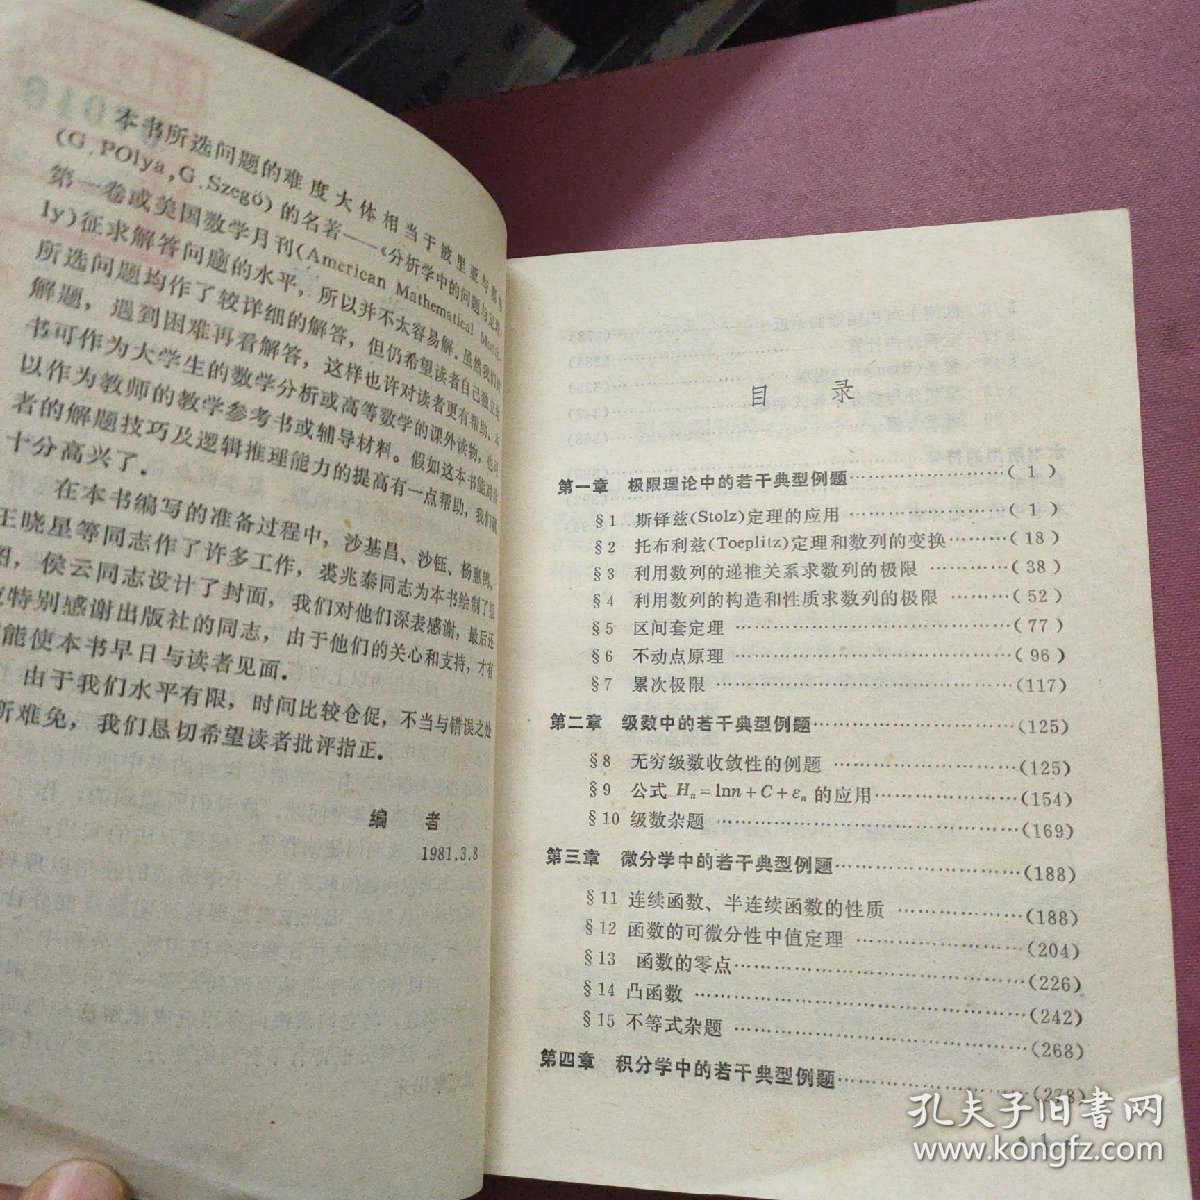 本书所选问题的难度大体相当于波里亚与
(G.POlya,G.Szegö)的名著——《分析学中的问题与定理》
第一卷或美国数学月刊(American Mathematical Month-
ly)征求解答问题的水平，所以并不太容易解.虽然我们对
所选问题均作了较详细的解答，但仍希望读者自己独立
解题，遇到困难再看解答，这样也许对读者更有帮助.
书可作为大学生的数学分析或高等数学的课外读物，也可
以作为教师的教学参考书或辅导材料。假如这本书能对读
者的解题技巧及逻辑推理能力的提高有一点帮助，我们就
十分高兴了.
在本书编写的准备过程中，沙基昌、沙钰、杨惠
王晓星等同志作了许多工作，裘兆泰同志为本书绘制了插
图，侯云同志设计了封面，我们对他们深表感谢，最后还
特别感谢出版社的同志，由于他们的关心和支持，才有
能使本书早日与读者见面.
由于我们水平有限，时间比较仓促，不当与错误之处
所难免，我们恳切希望读者批评指正.
编 者
1981.3.8
目 录
第一章 极限理论中的若干典型例题……………(1)
§1 斯铎兹(Stolz)定理的应用……………(1)
§2 托布利兹(Toeplitz)定理和数列的变换………(18)
§3 利用数列的递推关系求数列的极限…………(38)
§4 利用数列的构造和性质求数列的极限………(52)
§5 区间套定理……………………(77)
§6 不动点原理……………………(96)
§7 累次极限………………………(117)
第二章 级数中的若干典型例题………………(125)
§8 无穷级数收敛性的例题………………(125)
§9 公式 Hₙ=lnn+C+εₙ 的应用……………(154)
§10 级数杂题………………………(169)
第三章 微分学中的若干典型例题……………(188)
§11 连续函数、半连续函数的性质…………(188)
§12 函数的可微分性中值定理……………(204)
§13 函数的零点……………………(226)
§14 凸函数…………………………(242)
§15 不等式杂题……………………(268)
第四章 积分学中的若干典型例题……………(278)
· 1 ·
孔夫子旧书网
www.kongfz.com